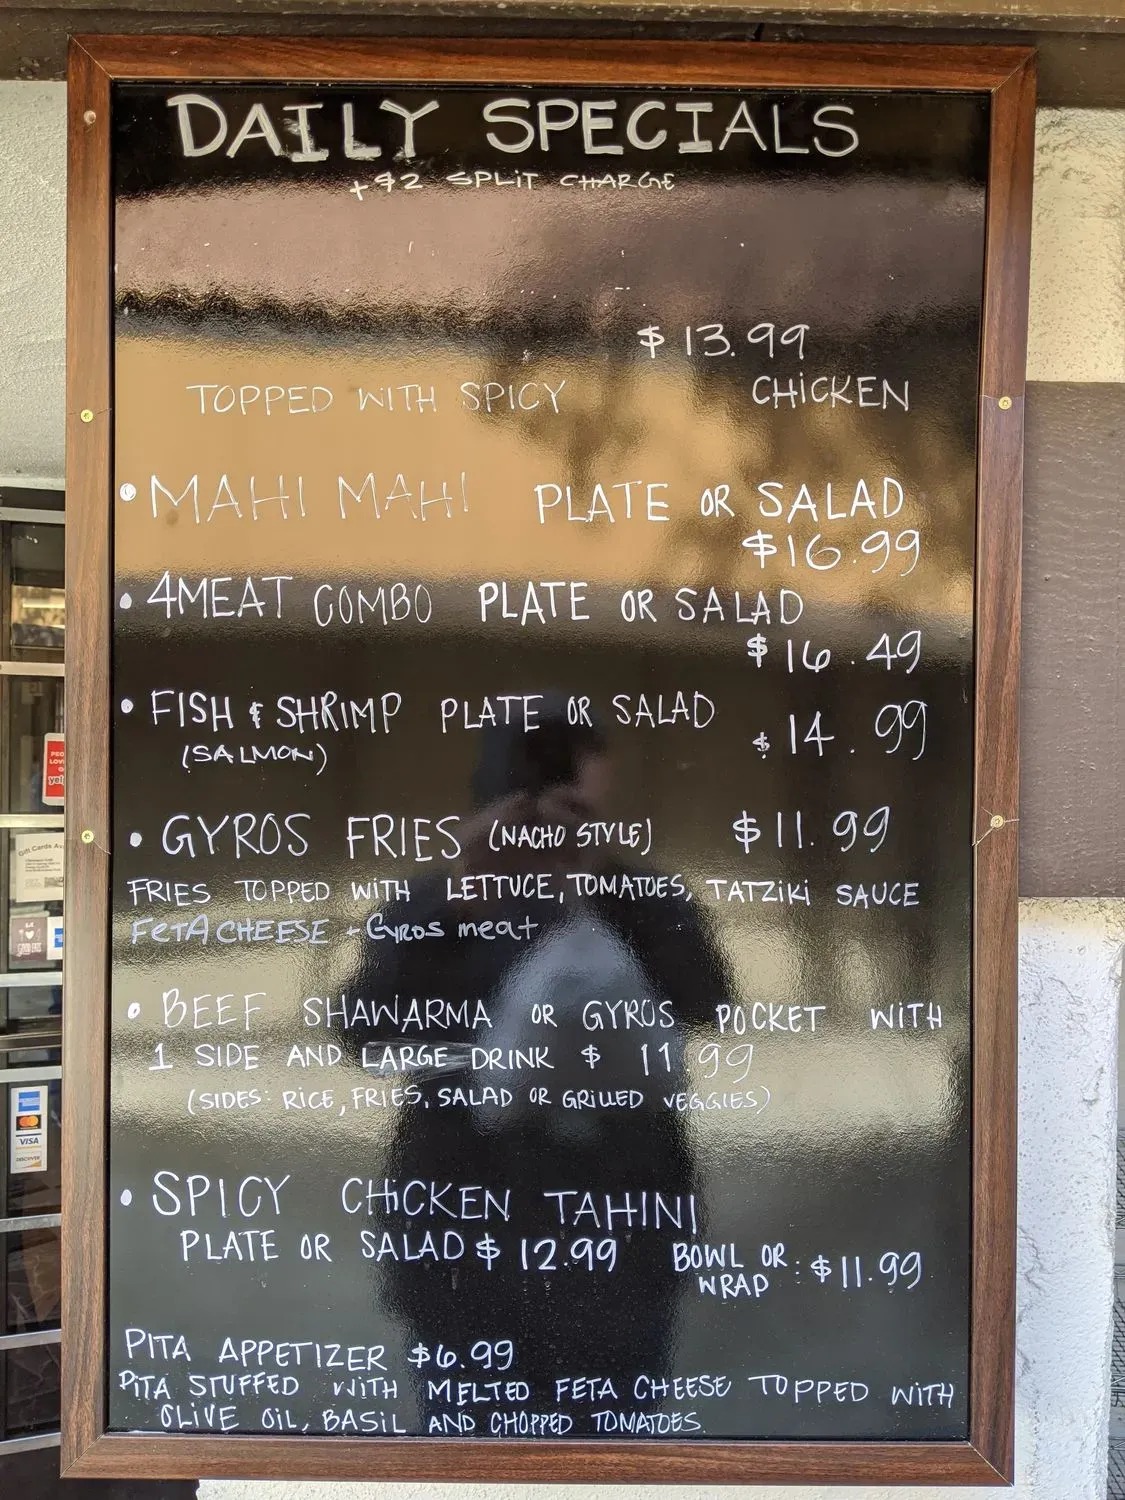 DAILY SPECIALS
+ $2 SPLIT CHARGE
$13.99
TOPPED WITH SPICY CHICKEN
• MAHI MAHI PLATE OR SALAD
$16.99
• 4MEAT COMBO PLATE OR SALAD
$16.49
• FISH & SHRIMP PLATE OR SALAD
(SALMON) $14.99
• GYROS FRIES (NACHO STYLE) $11.99
FRIES TOPPED WITH LETTUCE, TOMATOES, TATZIKI SAUCE
FETA CHEESE + Gyros meat
• BEEF SHAWARMA OR GYROS POCKET WITH
1 SIDE AND LARGE DRINK $11.99
(SIDES: RICE, FRIES, SALAD OR GRILLED VEGGIES)
• SPICY CHICKEN TAHINI
PLATE OR SALAD $12.99 BOWL OR
WRAP : $11.99
PITA APPETIZER $6.99
PITA STUFFED WITH MELTED FETA CHEESE TOPPED WITH
OLIVE OIL, BASIL AND CHOPPED TOMATOES.
Gift Cards
VISA
DISCOVER